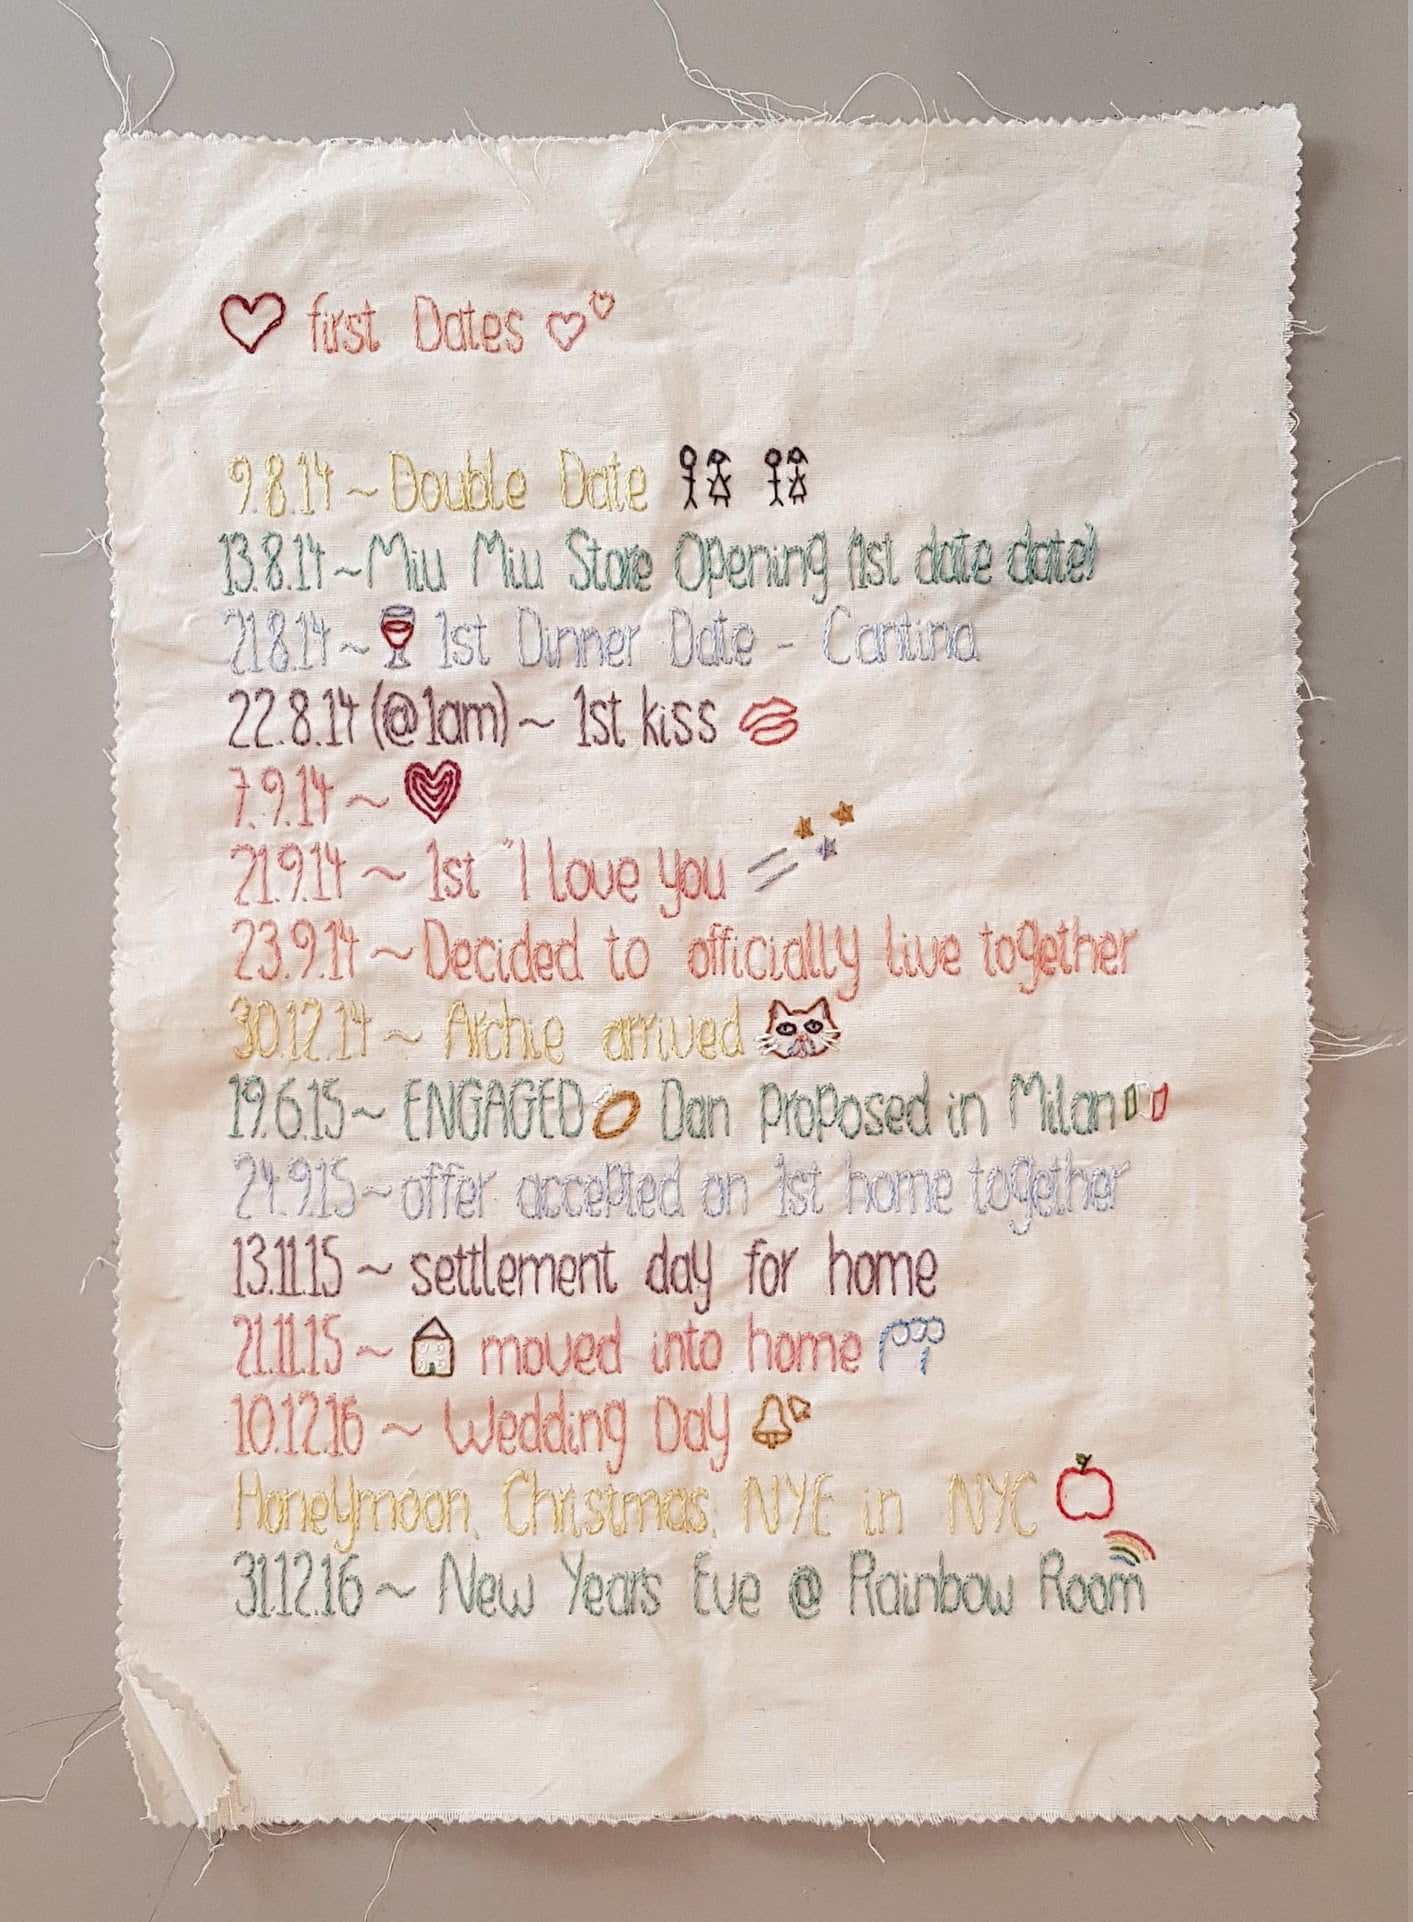 first Dates
9.8.14 ~ Double Date
13.8.14 ~ Miu Miu Store Opening (1st date date)
21.8.14 ~ 1st Dinner Date - Cantina
22.8.14 (@1am) ~ 1st kiss
7.9.14 ~
21.9.14 ~ 1st "I love you
23.9.14 ~ Decided to officially live together
30.12.14 ~ Archie arrived
19.6.15 ~ ENGAGED Dan proposed in Milan
24.9.15 ~ offer accepted on 1st home together
13.11.15 ~ settlement day for home
21.11.15 ~ moved into home
10.12.16 ~ Wedding Day
Honeymoon, Christmas, NYE in NYC
31.12.16 ~ New Years Eve @ Rainbow Room